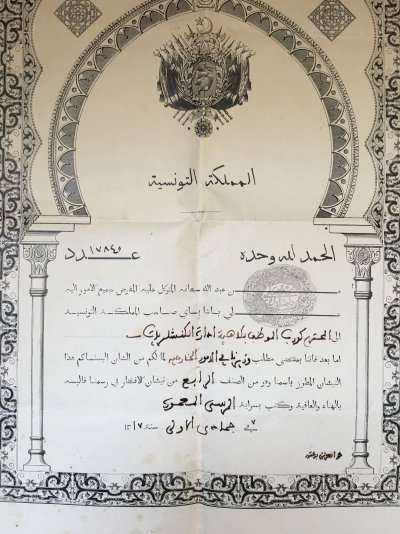 المملكة التونسية
الحمد لله وحده
عدد ١٧٨٤٥
من عبد الله سبحانه المتوكل عليه المفوض جميع الأمور إليه
باشا باي صاحب المملكة التونسية
إلى المحترم الموظف بادارة
اما بعد فاننا بمقتضى مطلب وزيرنا في الأمور الخارجية لما لكم من الشان البسناكم هذا
النيشان المطرز باسمنا وهو من الصنف الرابع من نيشان الافتخار في رسمنا فالبسه
بالهناء والعافية وكتب بسراية المعمورة
في ٧ جمادى الأولى سنة ١٣١٧